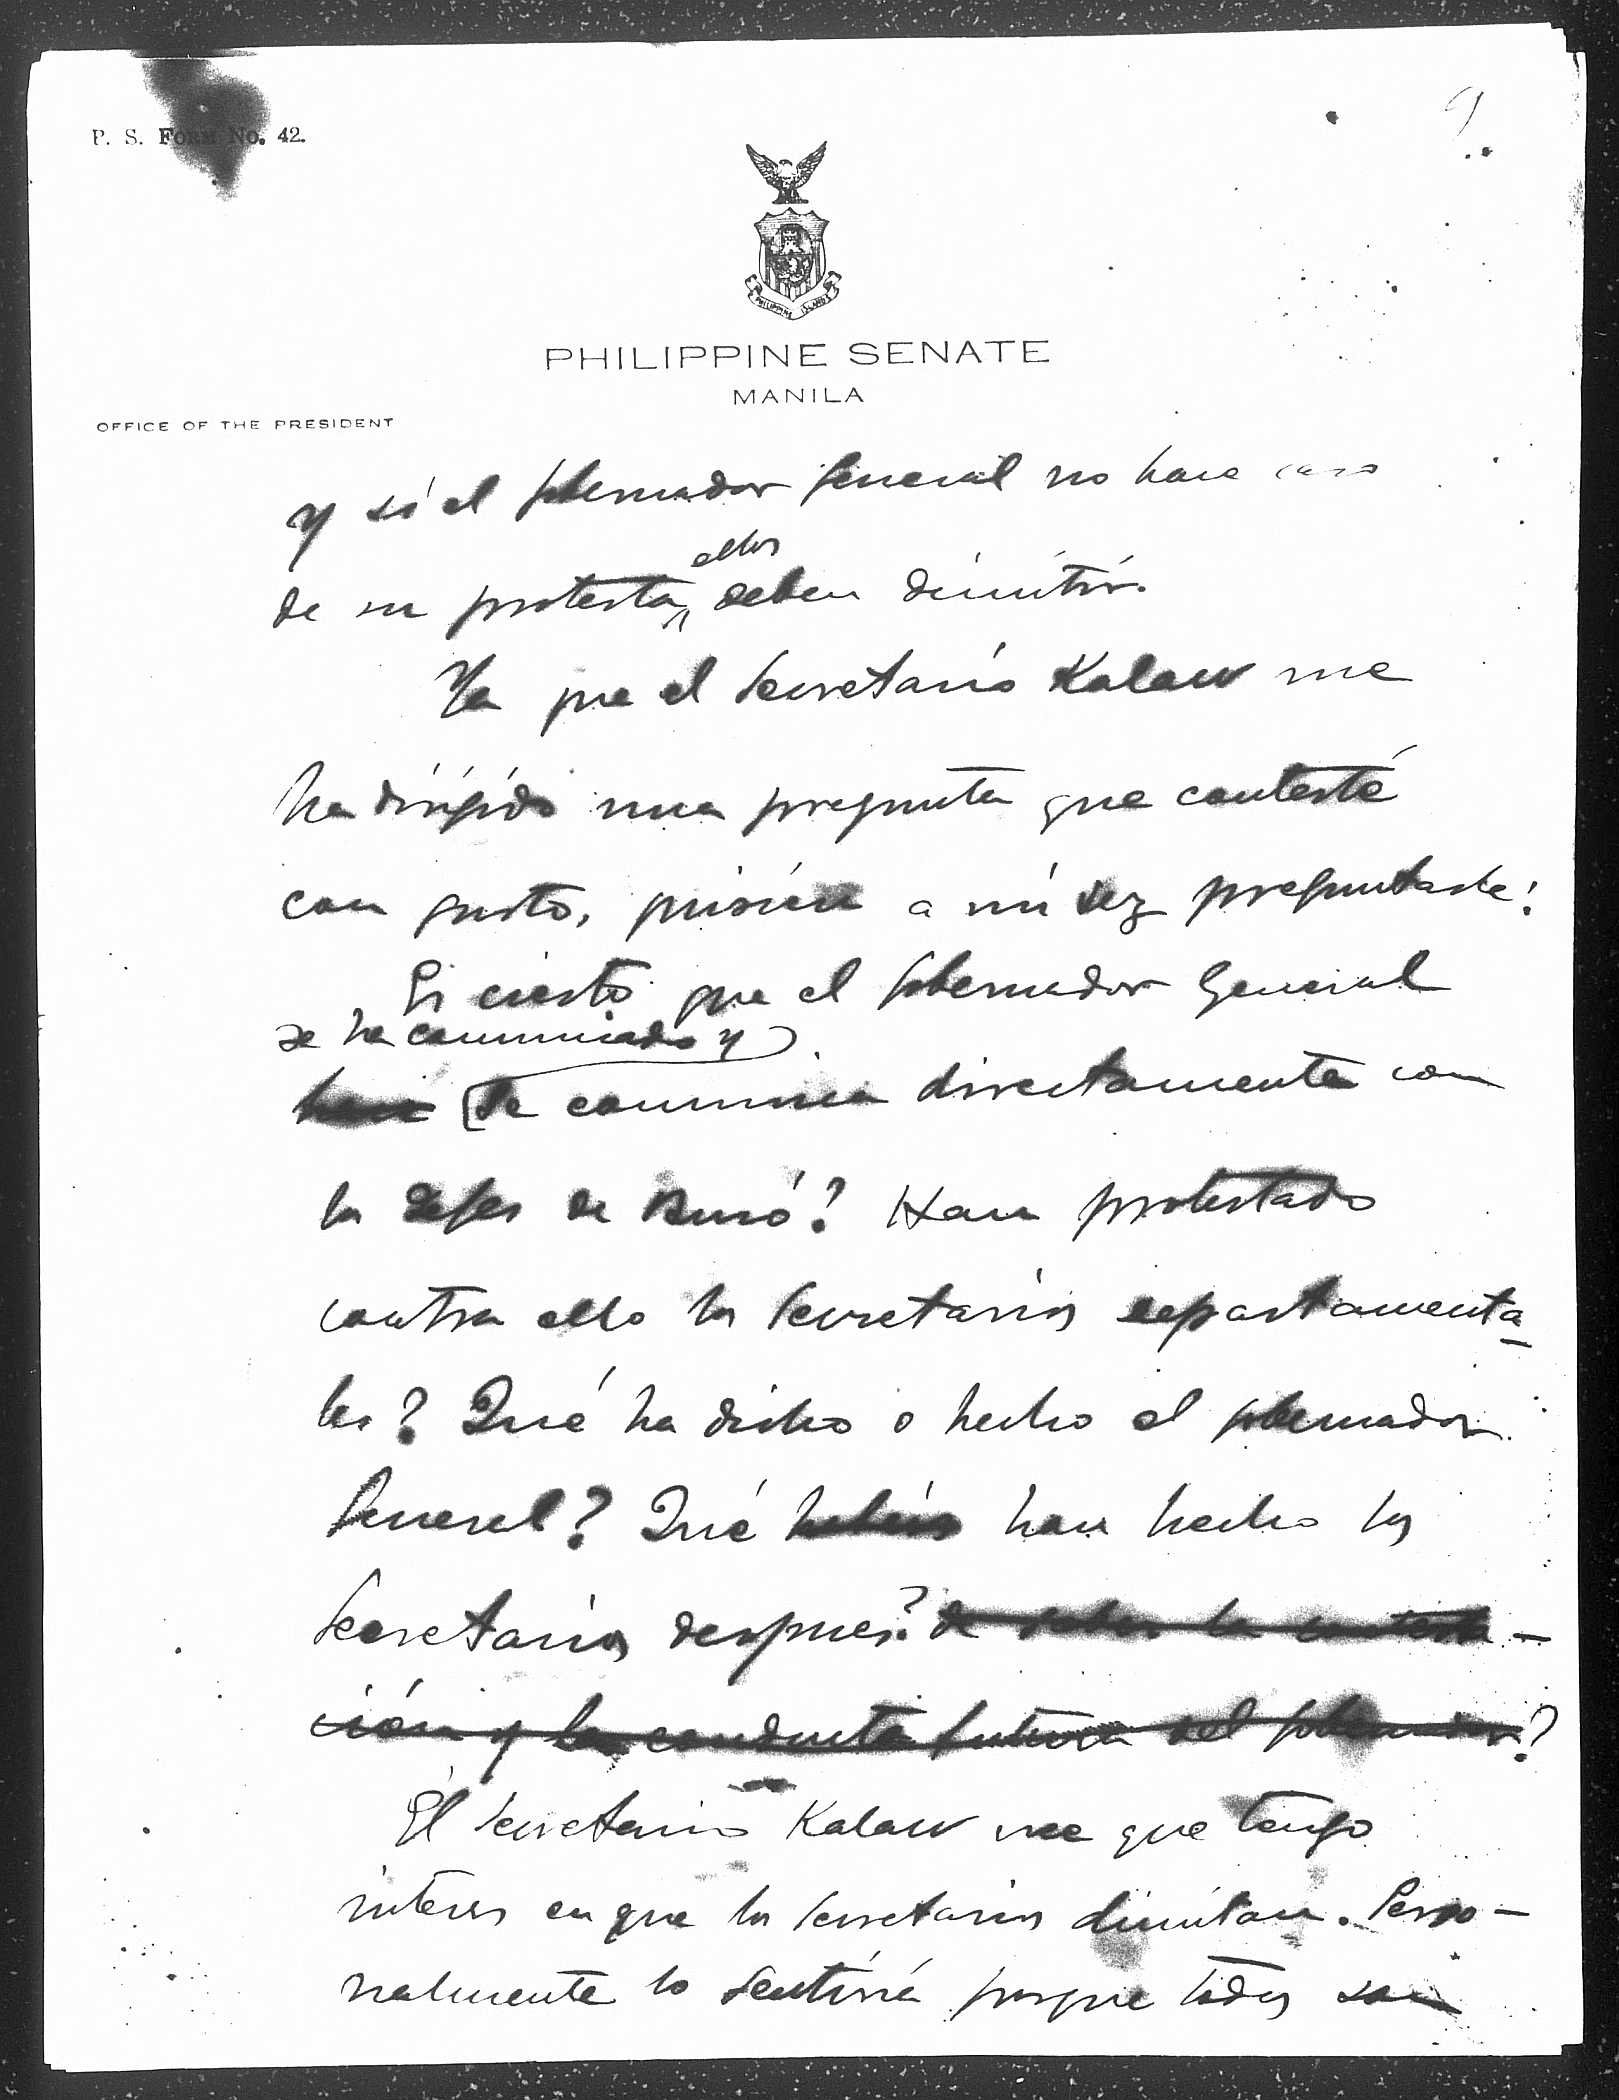 9
P. S. FORM No. 42.
PHILIPPINE ISLANDS
PHILIPPINE SENATE
MANILA
OFFICE OF THE PRESIDENT
y si el gobernador general no hace caso
ellos
de su protesta, deben dimitir.
Ya que el Secretario Kalaw me
ha dirigido una pregunta que contesté
con gusto, quisiera a mi vez preguntarle:
Es cierto que el gobernador General
se ha comunicado y
se comunica directamente con
los Jefes de Buró? Han protestado
contra ello los Secretarios departamenta-
les? Qué ha dicho o hecho el gobernador
General? Qué han hecho los
Secretarios despues? de saber la contesta-
ción y la conducta futura del gobernador?
El Secretario Kalaw cree que tengo
interes en que los Secretarios dimitan. Perso-
nalmente lo sentiría porque todos son